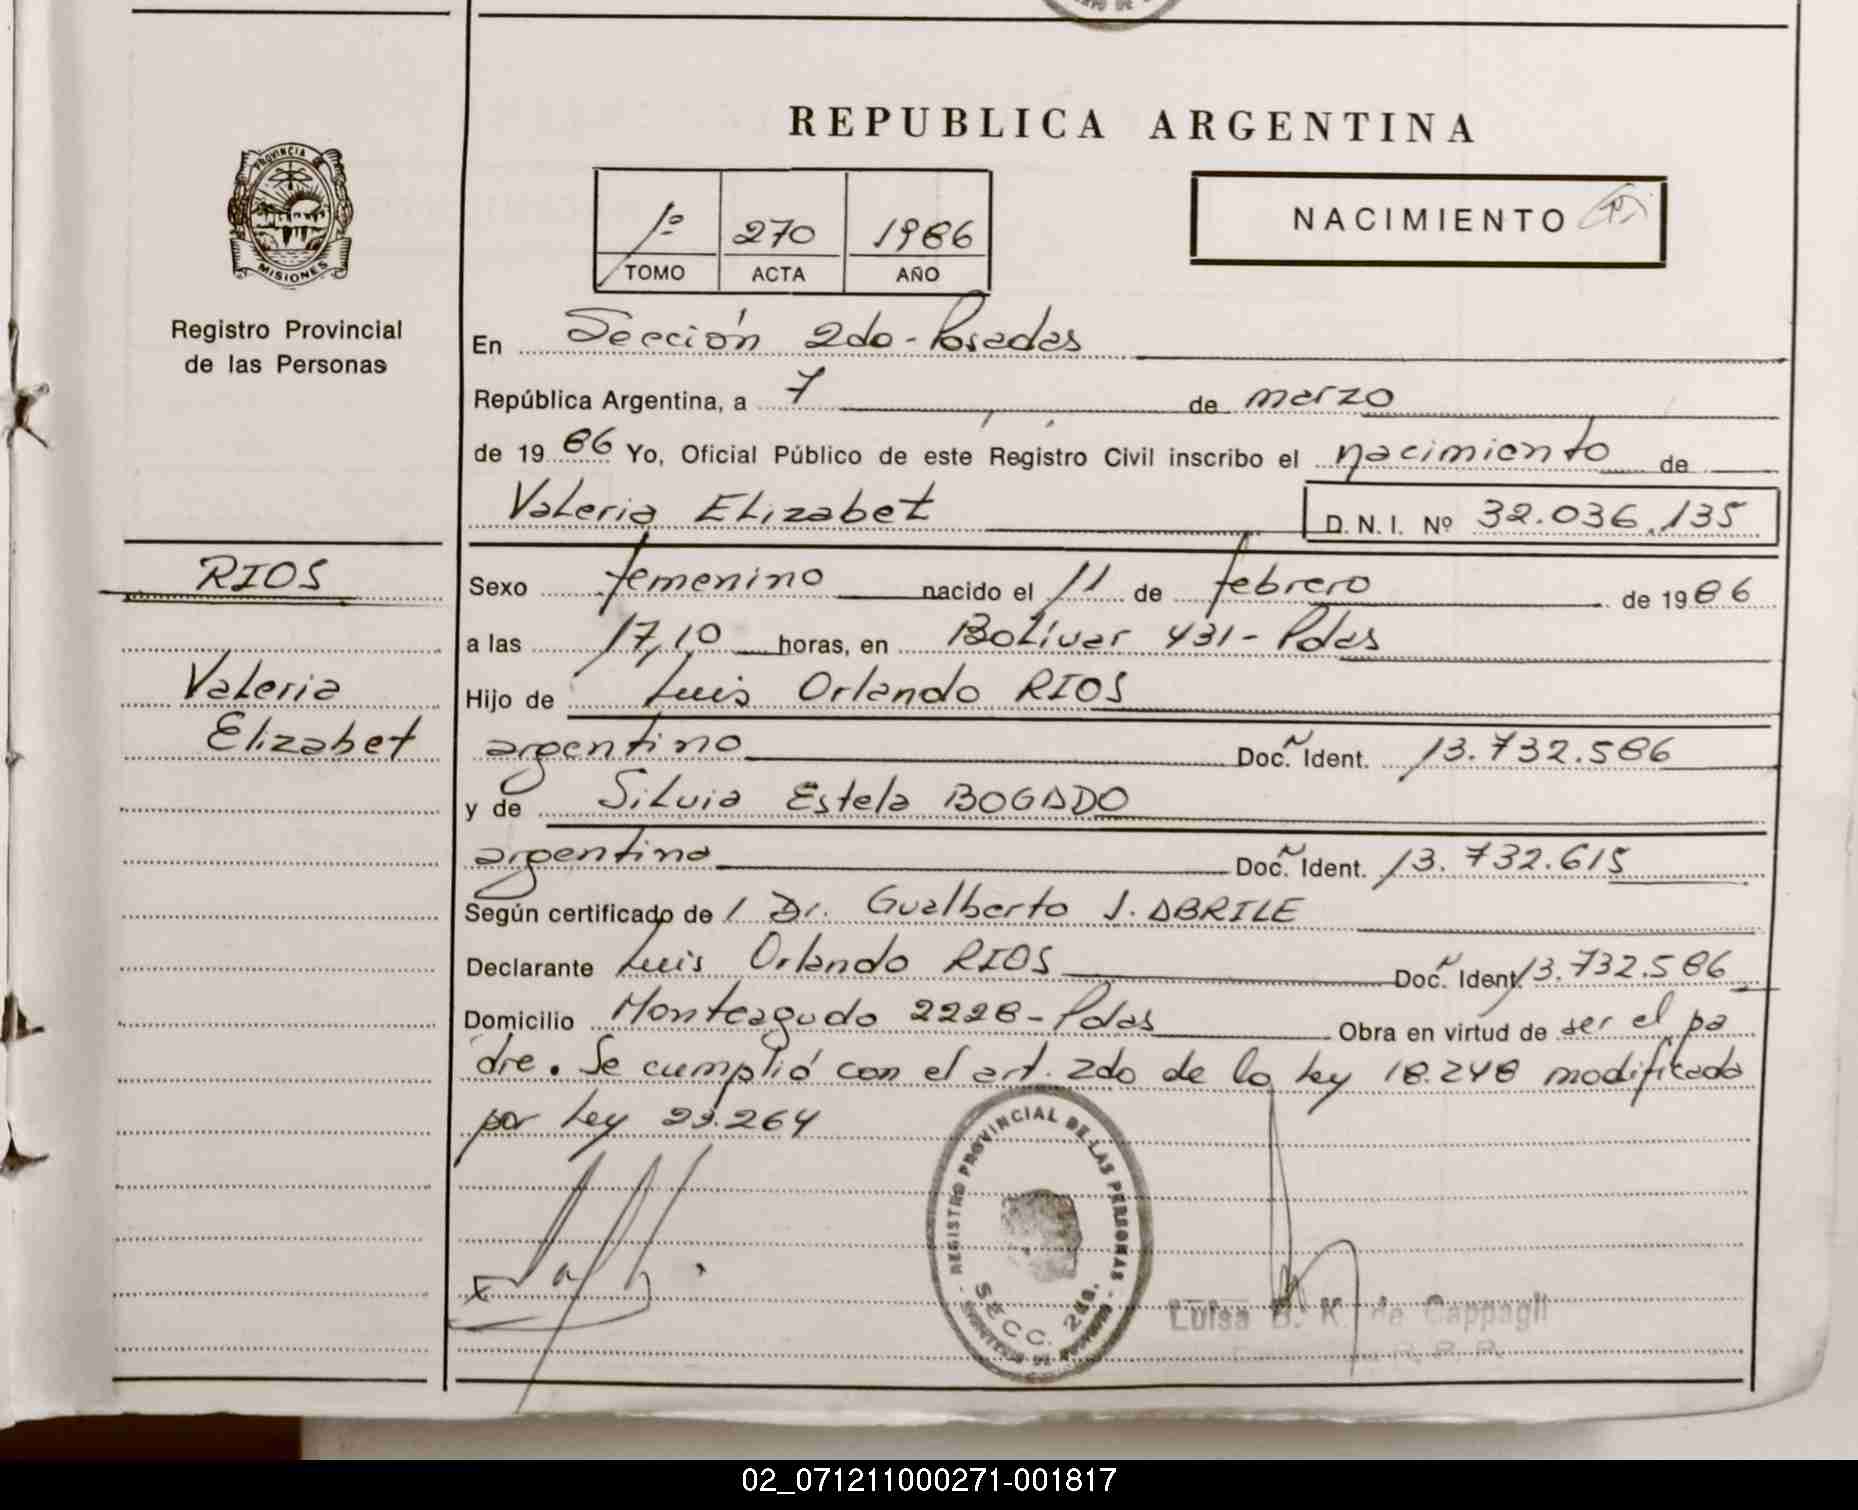 REPUBLICA ARGENTINA
PROVINCIA DE
MISIONES
Registro Provincial
de las Personas
1º 270 1986
TOMO ACTA AÑO
NACIMIENTO
En Sección 2do - Posadas
República Argentina, a 7 de marzo
de 1986 Yo, Oficial Público de este Registro Civil inscribo el nacimiento de
Valeria Elizabet D. N. I. Nº 32.036.135
RIOS
Valeria
Elizabet
Sexo femenino nacido el 11 de febrero de 1986
a las 17,10 horas, en Bolívar 431 - Pdas
Hijo de Luis Orlando RIOS
argentino Doc. Ident. 13.732.586
y de Silvia Estela BOGADO
argentina Doc. Ident. 13.732.615
Según certificado de 1 Dr. Gualberto J. ABRILE
Declarante Luis Orlando RIOS Doc. Ident. 13.732.586
Domicilio Monteagudo 2228 - Pdas Obra en virtud de ser el pa
dre. Se cumplió con el art. 2do de la ley 18.248 modificada
por Ley 23.264
REGISTRO PROVINCIAL DE LAS PERSONAS
SECC. 2da.
Luisa B. K. de Cappagli
02_071211000271-001817